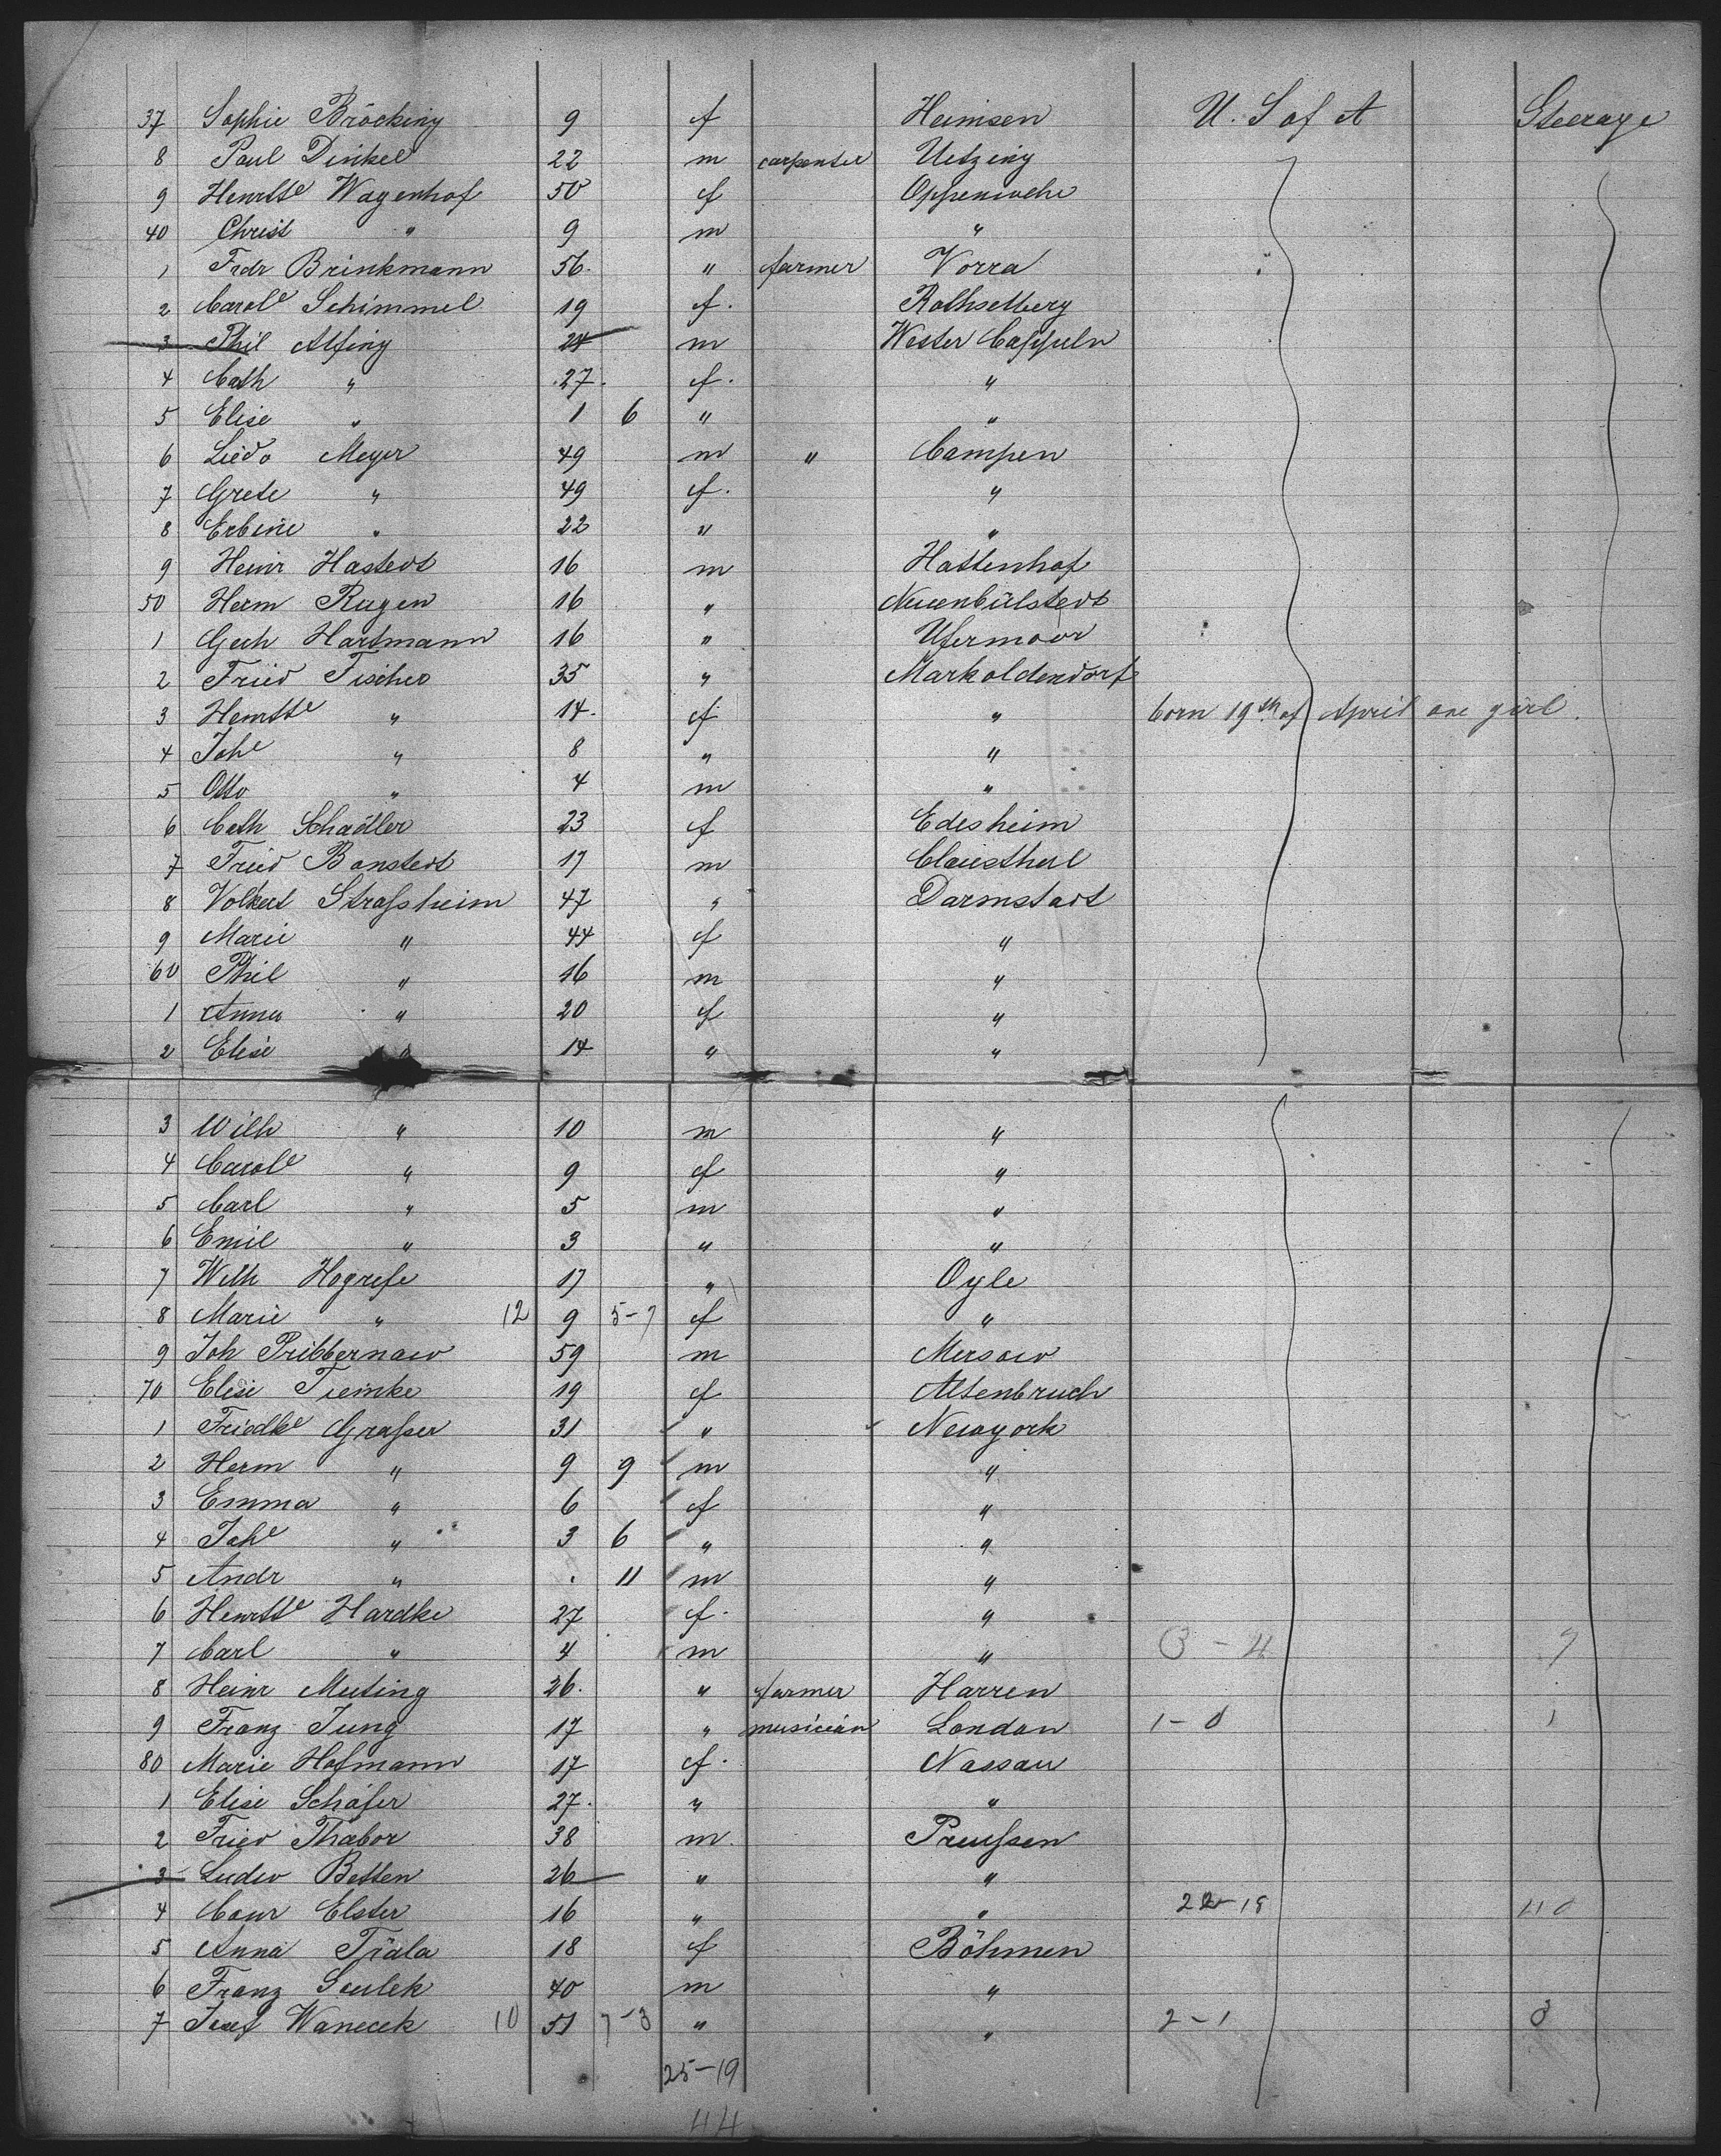 37 Sophie Bröcking 9 f Heimsen U. S of A Steerage
8 Paul Dinkel 22 m carpenter Uetzing
9 Henrtte Wagenhof 50 f Oppenwehe
40 Christ " 9 m "
1 Fredr Brinkmann 56 " farmer Vorra
2 Carole Schimmel 19 f Rathselberg
3 Phil Alfing 24 m Wester Cappeln
4 Cath " 27 f "
5 Elise " 1 6 " "
6 Meyer 49 m " Campen
7 Grete " 49 f "
8 Erbine " 22 " "
9 Heinr Hastedt 16 m Hattenhof
50 Herm Rugen 16 " Neuenbülstedt
1 Gerh Hartmann 16 " Ufermoor
2 Fried Fischer 35 " Markoldendorf
3 Henrtte " 14 f " born 19th of April one girl.
4 Johe " 8 " "
5 Otto " 4 m "
6 Cath Schädler 23 f Edesheim
7 Fried Banstedt 17 m Clausthal
8 Volkert Straſsheim 47 " Darmstadt
9 Marie " 44 f "
60 Phil " 16 m "
1 Anna " 20 f "
2 Elise " 14 " "
3 Wilh " 10 m "
4 Carole " 9 f "
5 Carl " 5 m "
6 Emil " 3 " "
7 Wilh Hogrefe 17 " Oyle
8 Marie " 12 9 5-7 f "
9 Joh Pribbernow 59 m Mersow
70 Elise Tiemke 19 f Altenbruch
1 Friedke Graſser 31 " Newyork
2 Herm " 9 9 m "
3 Emma " 6 f "
4 Johe " 3 6 " "
5 Andr " . 11 m "
6 Henrtte Hardke 27 f "
7 Carl " 4 m " 3-4 7
8 Heinr Muting 26 " farmer Harren
9 Franz Jung 17 " musician London 1-0 1
80 Marie Hofmann 17 f Nassau
1 Elise Schäfer 27 " "
2 Fried Thabor 38 m Preuſsen
3 Ludw Betten 26 " "
4 Conr Elster 16 " " 22-18 40
5 Anna Fiala 18 f Böhmen
6 Franz Soulek 40 m "
7 Josef Wanecek 10 51 7-3 " " 2-1 3
25-19
44